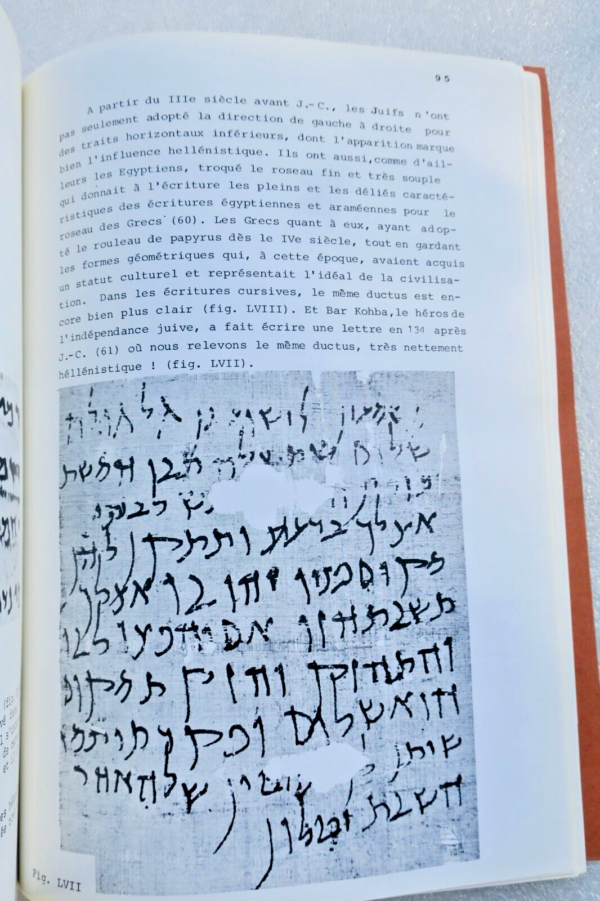 95
A partir du IIIe siècle avant J.-C., les Juifs n'ont
pas seulement adopté la direction de gauche à droite pour
des traits horizontaux inférieurs, dont l'apparition marque
bien l'influence hellénistique. Ils ont aussi,comme d'ail-
leurs les Egyptiens, troqué le roseau fin et très souple
qui donnait à l'écriture les pleins et les déliés caracté-
ristiques des écritures égyptiennes et araméennes pour le
roseau des Grecs (60). Les Grecs quant à eux, ayant adop-
té le rouleau de papyrus dès le IVe siècle, tout en gardant
les formes géométriques qui, à cette époque, avaient acquis
un statut culturel et représentait l'idéal de la civilisa-
tion. Dans les écritures cursives, le même ductus est en-
core bien plus clair (fig. LVIII). Et Bar Kohba,le héros de
l'indépendance juive, a fait écrire une lettre en 134 après
J.-C. (61) où nous relevons le même ductus, très nettement
héllénistique ! (fig. LVII).
לישוע בן גלגולה
שלום
אצלך ותתקן להן
מקום פנוי יהו בו אצלך
תשבת הזו אם יחפצו לבו
והתחזק וחזק תמקום
הוא שלום
שיתן שלהאחר
השבת יטלון
Fig. LVII